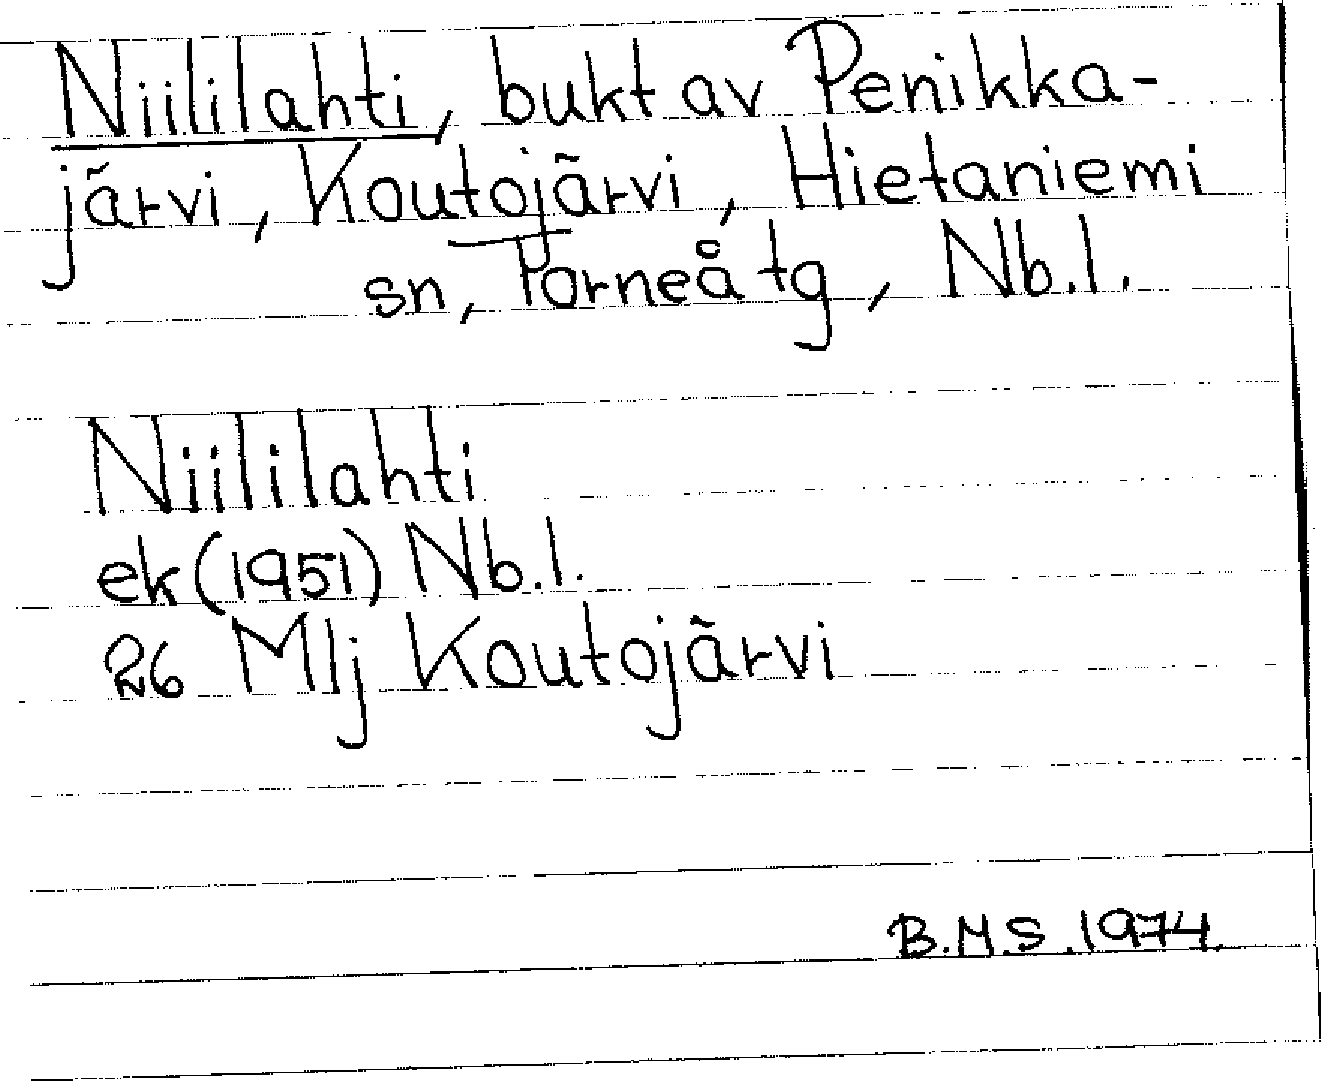 Niililahti, bukt av Penikka-
järvi, Koutojärvi, Hietaniemi
sn, Torneå tg, Nb.l.
Niililahti
ek (1951) Nb.l.
26 Mlj Koutojärvi
B.M.S. 1974.